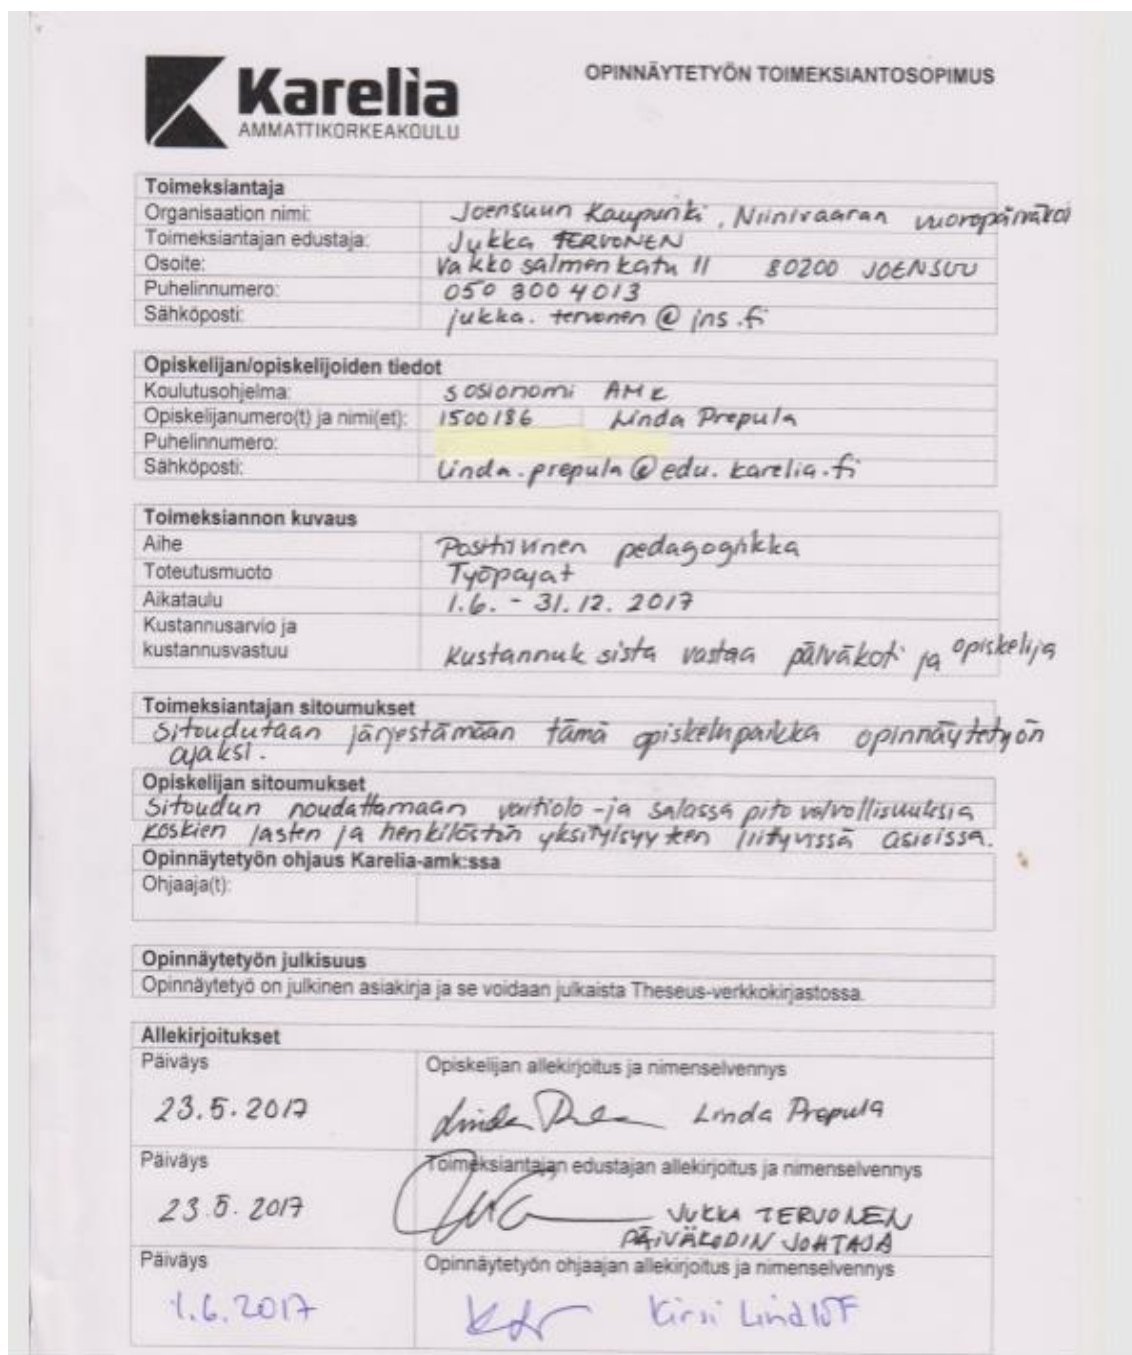 Karelia
AMMATTIKORKEAKOULU
OPINNÄYTETYÖN TOIMEKSIANTOSOPIMUS
Toimeksiantaja
Organisaation nimi: Joensuun Kaupunki, Niinivaaran vuoropäiväkoi
Toimeksiantajan edustaja: Jukka TERVONEN
Osoite: Vakkosalmenkatu 11 80200 JOENSUU
Puhelinnumero: 050 300 4013
Sähköposti: jukka.tervonen@jns.fi
Opiskelijan/opiskelijoiden tiedot
Koulutusohjelma: sosionomi AMK
Opiskelijanumero(t) ja nimi(et): 1500186 Linda Prepula
Puhelinnumero:
Sähköposti: linda.prepula@edu.karelia.fi
Toimeksiannon kuvaus
Aihe Positiivinen pedagogiikka
Toteutusmuoto Työpajat
Aikataulu 1.6. - 31.12. 2017
Kustannusarvio ja
kustannusvastuu Kustannuksista vastaa päiväkoti ja opiskelija
Toimeksiantajan sitoumukset
Sitoudutaan järjestämään tämä opiskelupaikka opinnäytetyön
ajaksi.
Opiskelijan sitoumukset
Sitoudun noudattamaan vaitiolo- ja salassa pito velvollisuuksia
koskien lasten ja henkilöstön yksityisyyteen liityvissä asioissa.
Opinnäytetyön ohjaus Karelia-amk:ssa
Ohjaaja(t):
Opinnäytetyön julkisuus
Opinnäytetyö on julkinen asiakirja ja se voidaan julkaista Theseus-verkkokirjastossa.
Allekirjoitukset
Päiväys Opiskelijan allekirjoitus ja nimenselvennys
23.5.2017 Linda Prepula
Päiväys Toimeksiantajan edustajan allekirjoitus ja nimenselvennys
23.5.2017 JUKKA TERVONEN
PÄIVÄKODIN JOHTAJA
Päiväys Opinnäytetyön ohjaajan allekirjoitus ja nimenselvennys
1.6.2017 Kirsi Lindlöf